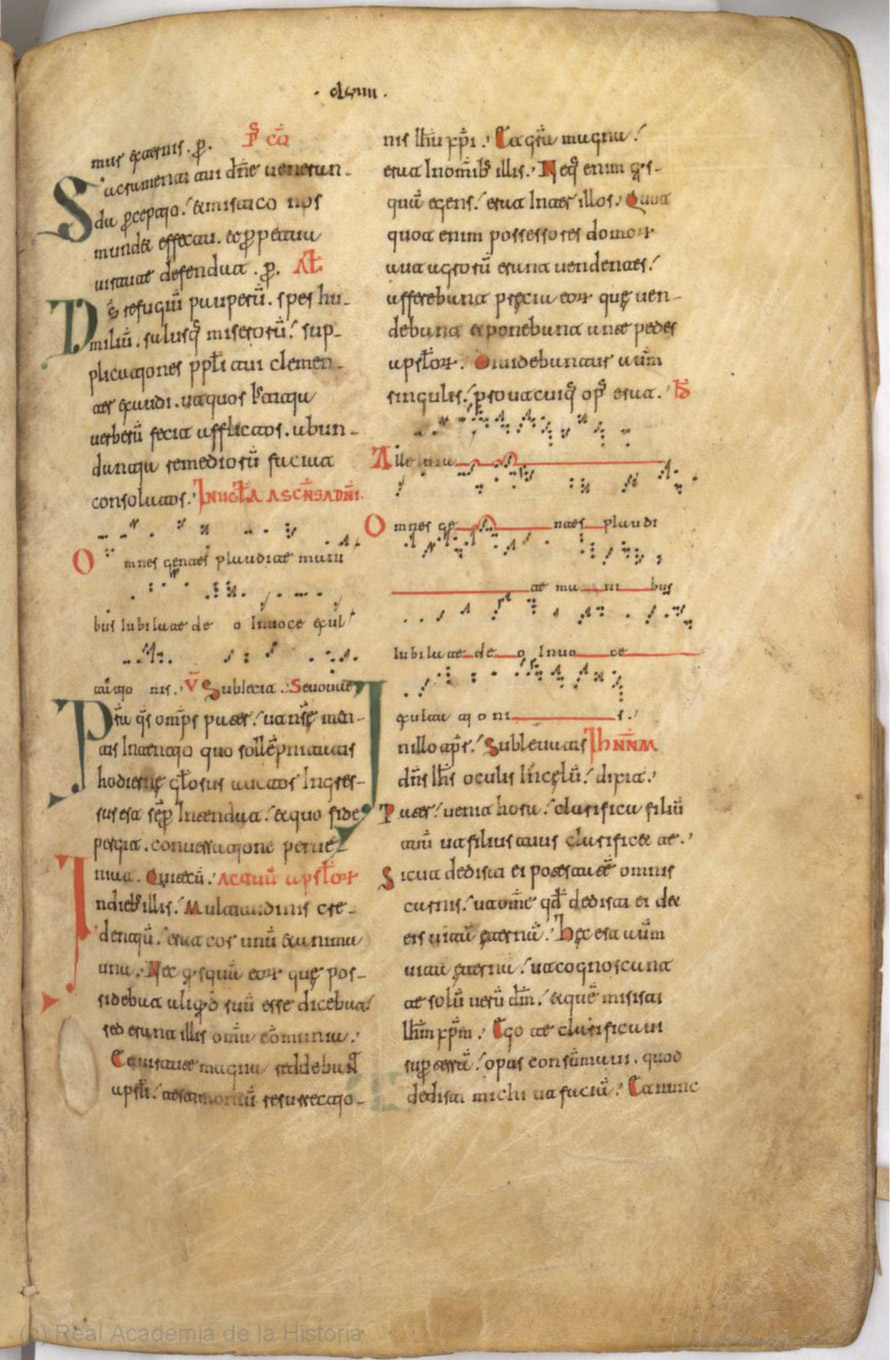 mus exaternis. p̄.
Sacramenta tui dn̄e uenerun-
da perceptio. et mistico nos
mundet effectu. et perpetua
uirtute defendat. p̄.
Ds̄ refugiū pauperū. spes hu-
miliū. salusq; miserorū. sup-
plicationes pp̄li tui clemen-
ter exaudi. ut quos iustitia
uerberū fecit afflictos. abun-
dantia remediorū faciat
consolatos. IN UIGL̄A ASCNS̄ DN̄I.
Omnes gentes plaudite mani
bus Iubilate deo In uoce exul
tationis. V̄ Subiecit.
Pr̄sta q̄s omp̄s pater. ut nr̄e men-
tis Intentio quo sollēpnitatis
hodierne gl̄osus auctor Ingres-
sus est sēp Intendat. et quo fide
pergit. conuersatione perue-
niat. ACTUŪ APSTL̄OR
In dieb; illis. Multitudinis cre-
dentiū. erat cor unū et anima
una. Nec quisquā eor que pos-
sidebat aliquid suū esse dicebat.
sed erant illis omīa cōmunia.
Et uirtute magna reddebant
apstl̄i. testimoniū resurrectio-
nis Ihū xp̄i. Et grā magna.
erat In omīb; illis. Neq; enim quis-
quā egens. erat Inter illos. Quot
quot enim possessores domor
aut agrorū erant uendentes.
afferebant preciū eor que uen-
debant et ponebant ante pedes
apstl̄or. Diuidebantur autm̄
singulis. prout cuiq; op; erat.
Alleluia
Omnes gentes plaudi
te manibus
Iubilate deo In uoce
exultationis.
In illo tp̄r. Subleuatis
dn̄s Ihs̄ oculis In celū. dixit.
Pater. uenit hora. clarifica filiū
tuū ut filius tuus clarificet te.
Sicut dedisti ei potestatē omnis
carnis. ut om̄e qd̄ dedisti ei det
eis uitā eternā. Hec est autm̄
uita eterna. ut cognoscant
te solū uerū dm̄. et quē misisti
Ihm̄ xpm̄. Ego te clarificaui
sup terrā. opus consūmaui. quod
dedisti michi ut faciā. Et nunc
(c) Real Academia de la Historia